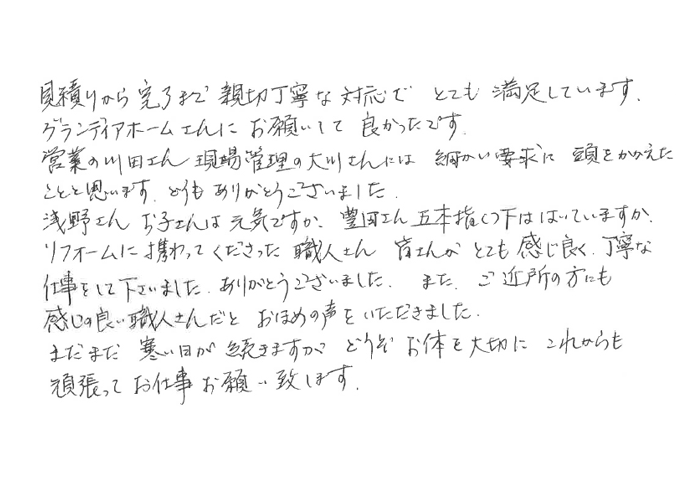 見積りから完了まで 親切丁寧な対応で とても 満足しています.
グランディアホームさんに お願いして 良かったです.
営業の川田さん 現場管理の大川さんには 細かい要求に 頭をかかえた
ことと思います. どうもありがとうございました.
浅野さん お子さんは元気ですか. 豊田さん 五本指くつ下は はいていますか.
リフォームに携わってくださった 職人さん 皆さんが とても 感じ良く. 丁寧な
仕事をして下さいました. ありがとうございました. また. ご近所の方にも
感じの良い職人さんだと おほめの声をいただきました.
まだまだ 寒い日が 続きますが どうぞ お体を大切に これからも
頑張って お仕事 お願い致します.